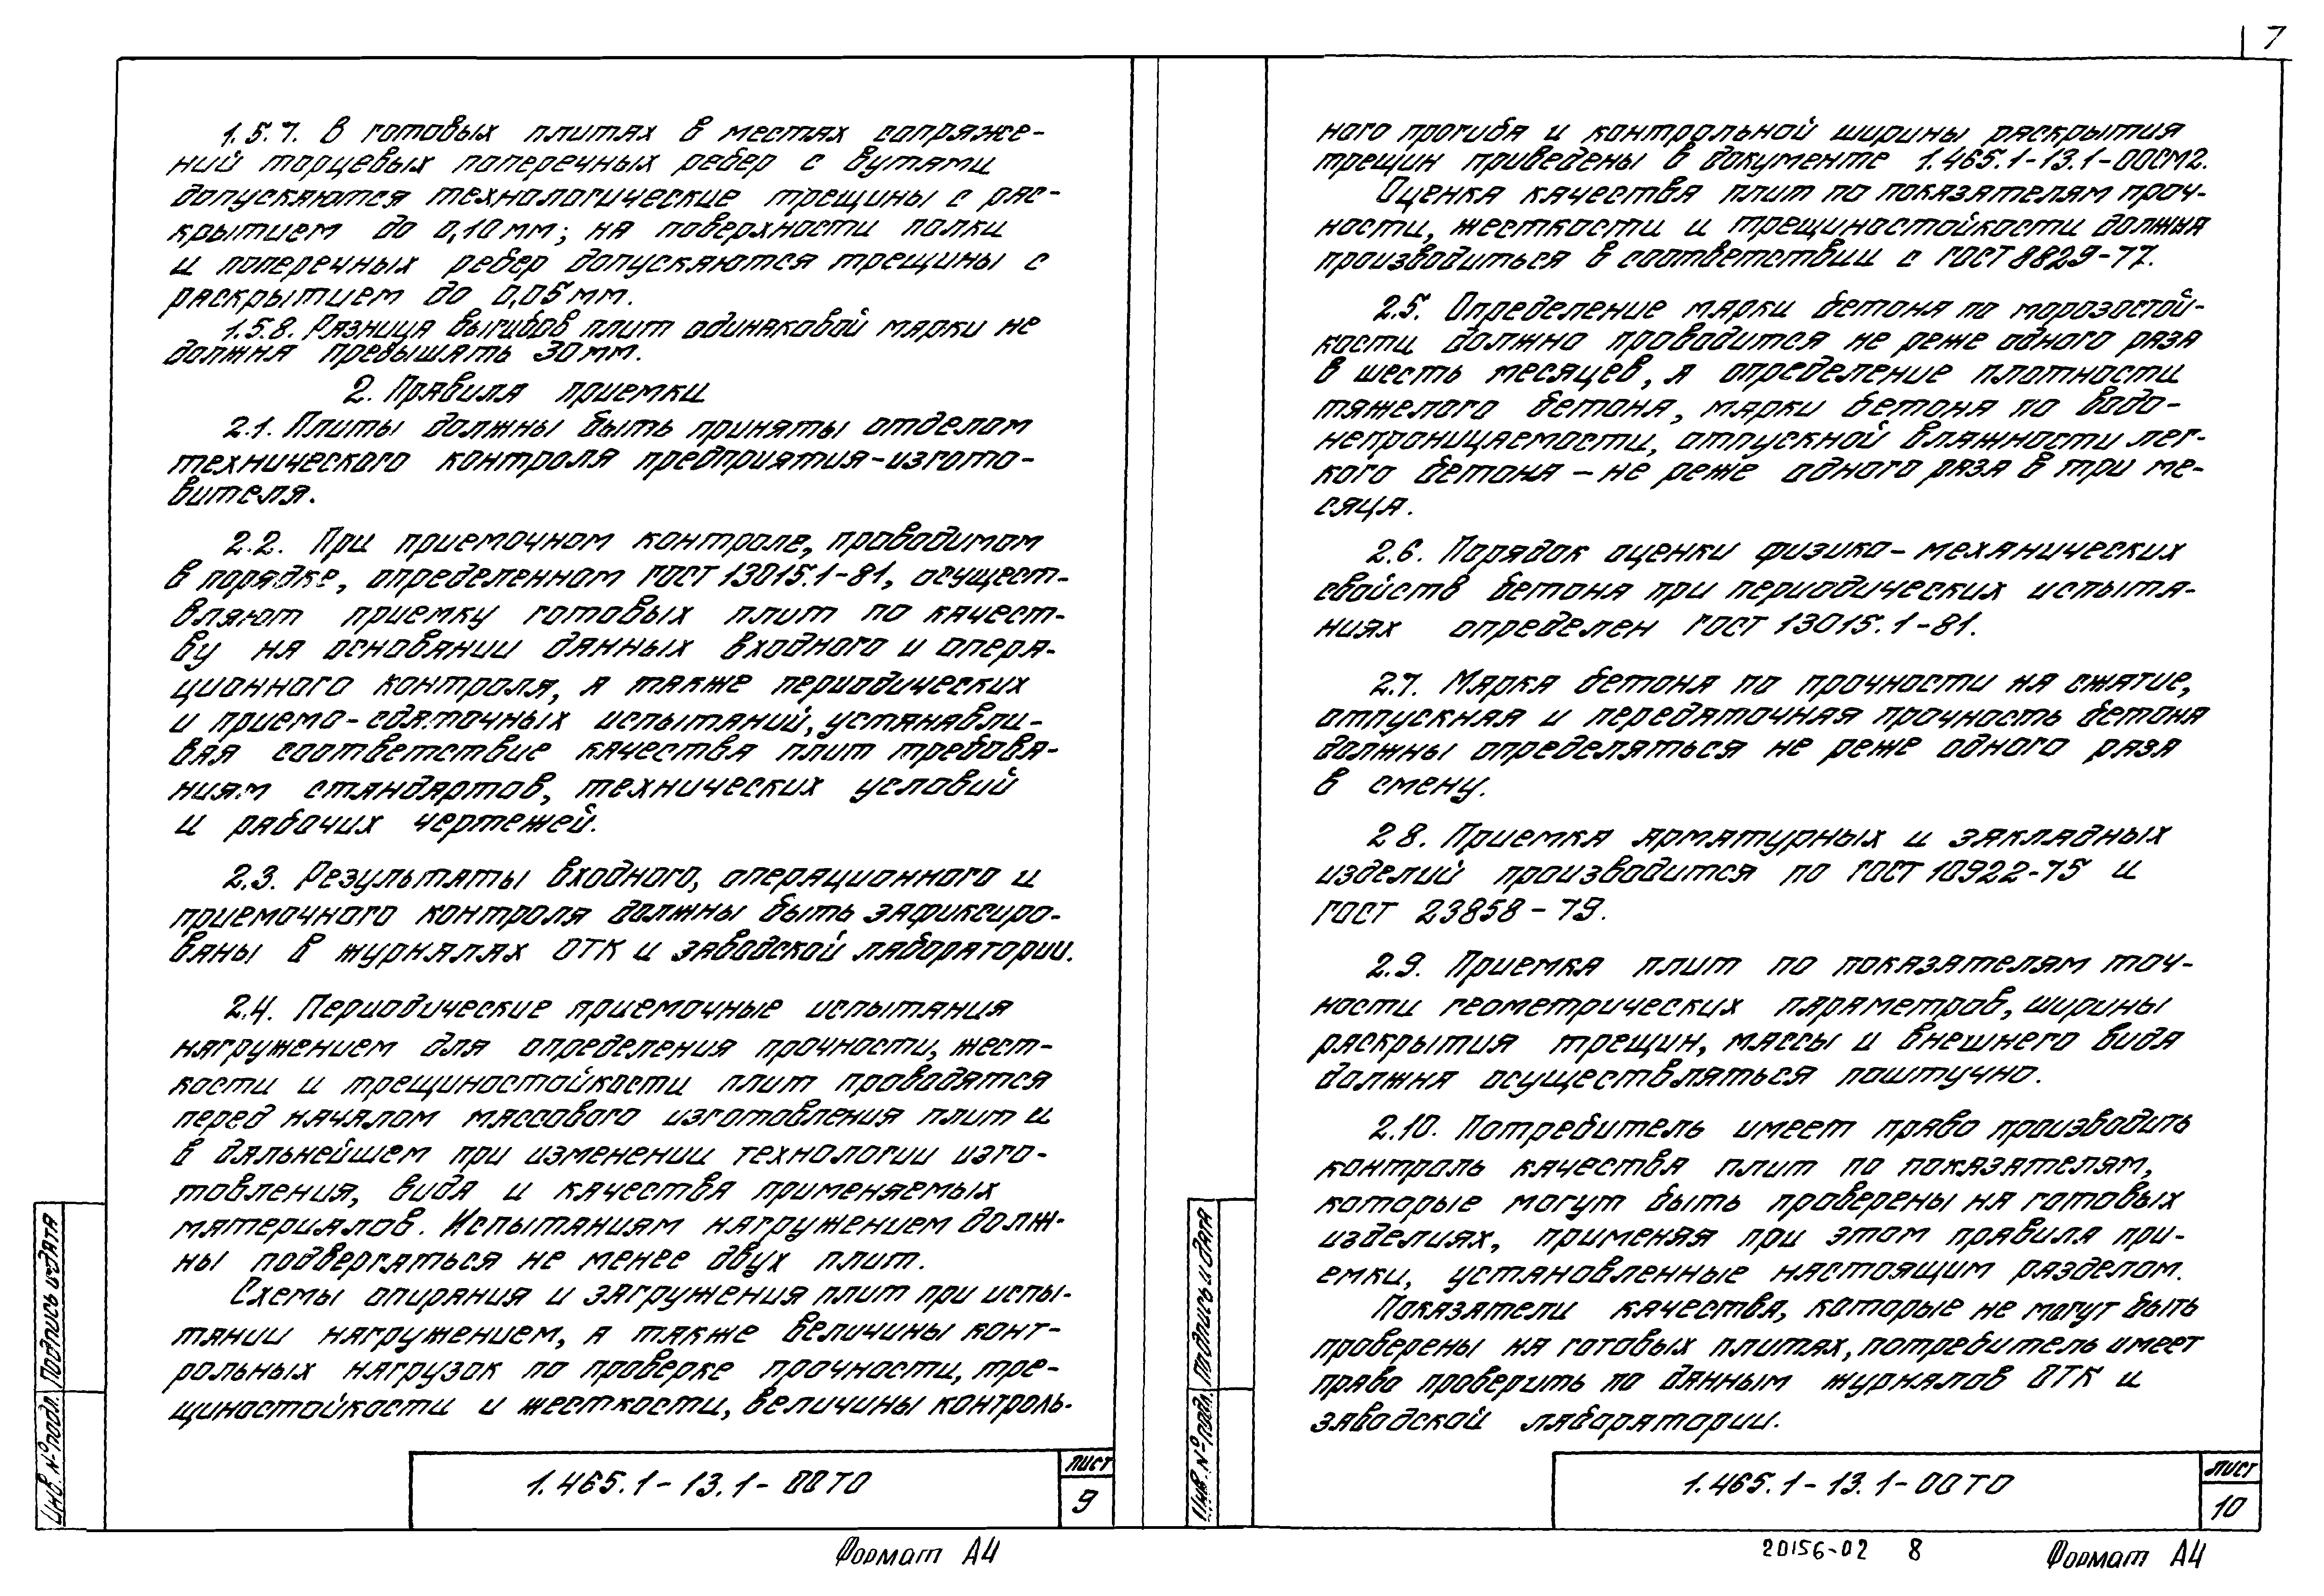 7
1.5.7. В готовых плитах в местах сопряже-
ний торцевых поперечных ребер с вутами
допускаются технологические трещины с рас-
крытием до 0,10мм; на поверхности полки
и поперечных ребер допускаются трещины с
раскрытием до 0,05мм.
1.5.8. Разница выгибов плит одинаковой марки не
должна превышать 30мм.
2. Правила приемки
2.1. Плиты должны быть приняты отделом
технического контроля предприятия-изгото-
вителя.
2.2. При приемочном контроле, проводимом
в порядке, определенном ГОСТ 13015.1-81, осущест-
вляют приемку готовых плит по качест-
ву на основании данных входного и опера-
ционного контроля, а также периодических
и приемо-сдаточных испытаний, устанавли-
вая соответствие качества плит требова-
ниям стандартов, технических условий
и рабочих чертежей.
2.3. Результаты входного, операционного и
приемочного контроля должны быть зафиксиро-
ваны в журналах ОТК и заводской лаборатории.
2.4. Периодические приемочные испытания
нагружением для определения прочности, жест-
кости и трещиностойкости плит проводятся
перед началом массового изготовления плит и
в дальнейшем при изменении технологии изго-
товления, вида и качества применяемых
материалов. Испытаниям нагружением долж-
ны подвергаться не менее двух плит.
Схемы опирания и загружения плит при испы-
тании нагружением, а также величины конт-
рольных нагрузок по проверке прочности, тре-
щиностойкости и жесткости, величины контроль-
1.465.1-13.1-00ТО
лист
9
Инв. № подл. Подпись и дата
Формат А4
ного прогиба и контрольной ширины раскрытия
трещин приведены в документе 1.465.1-13.1-00СМ2.
Оценка качества плит по показателям проч-
ности, жесткости и трещиностойкости должна
производиться в соответствии с ГОСТ 8829-77.
2.5. Определение марки бетона по морозостой-
кости должно проводится не реже одного раза
в шесть месяцев, а определение плотности
тяжелого бетона, марки бетона по водо-
непроницаемости, отпускной влажности лег-
кого бетона – не реже одного раза в три ме-
сяца.
2.6. Порядок оценки физико-механических
свойств бетона при периодических испыта-
ниях определен ГОСТ 13015.1-81.
2.7. Марка бетона по прочности на сжатие,
отпускная и передаточная прочность бетона
должны определяться не реже одного раза
в смену.
2 8. Приемка арматурных и закладных
изделий производится по ГОСТ 10922-75 и
ГОСТ 23858-79.
2.9. Приемка плит по показателям точ-
ности геометрических параметров, ширины
раскрытия трещин, массы и внешнего вида
должна осуществляться поштучно.
2.10. Потребитель имеет право производить
контроль качества плит по показателям,
которые могут быть проверены на готовых
изделиях, применяя при этом правила при-
емки, установленные настоящим разделом.
Показатели качества, которые не могут быть
проверены на готовых плитах, потребитель имеет
право проверить по данным журналов ОТК и
заводской лаборатории.
1.465.1-13.1-00ТО
лист
10
Инв. № подл. Подпись и дата
20156-02 8
Формат А4